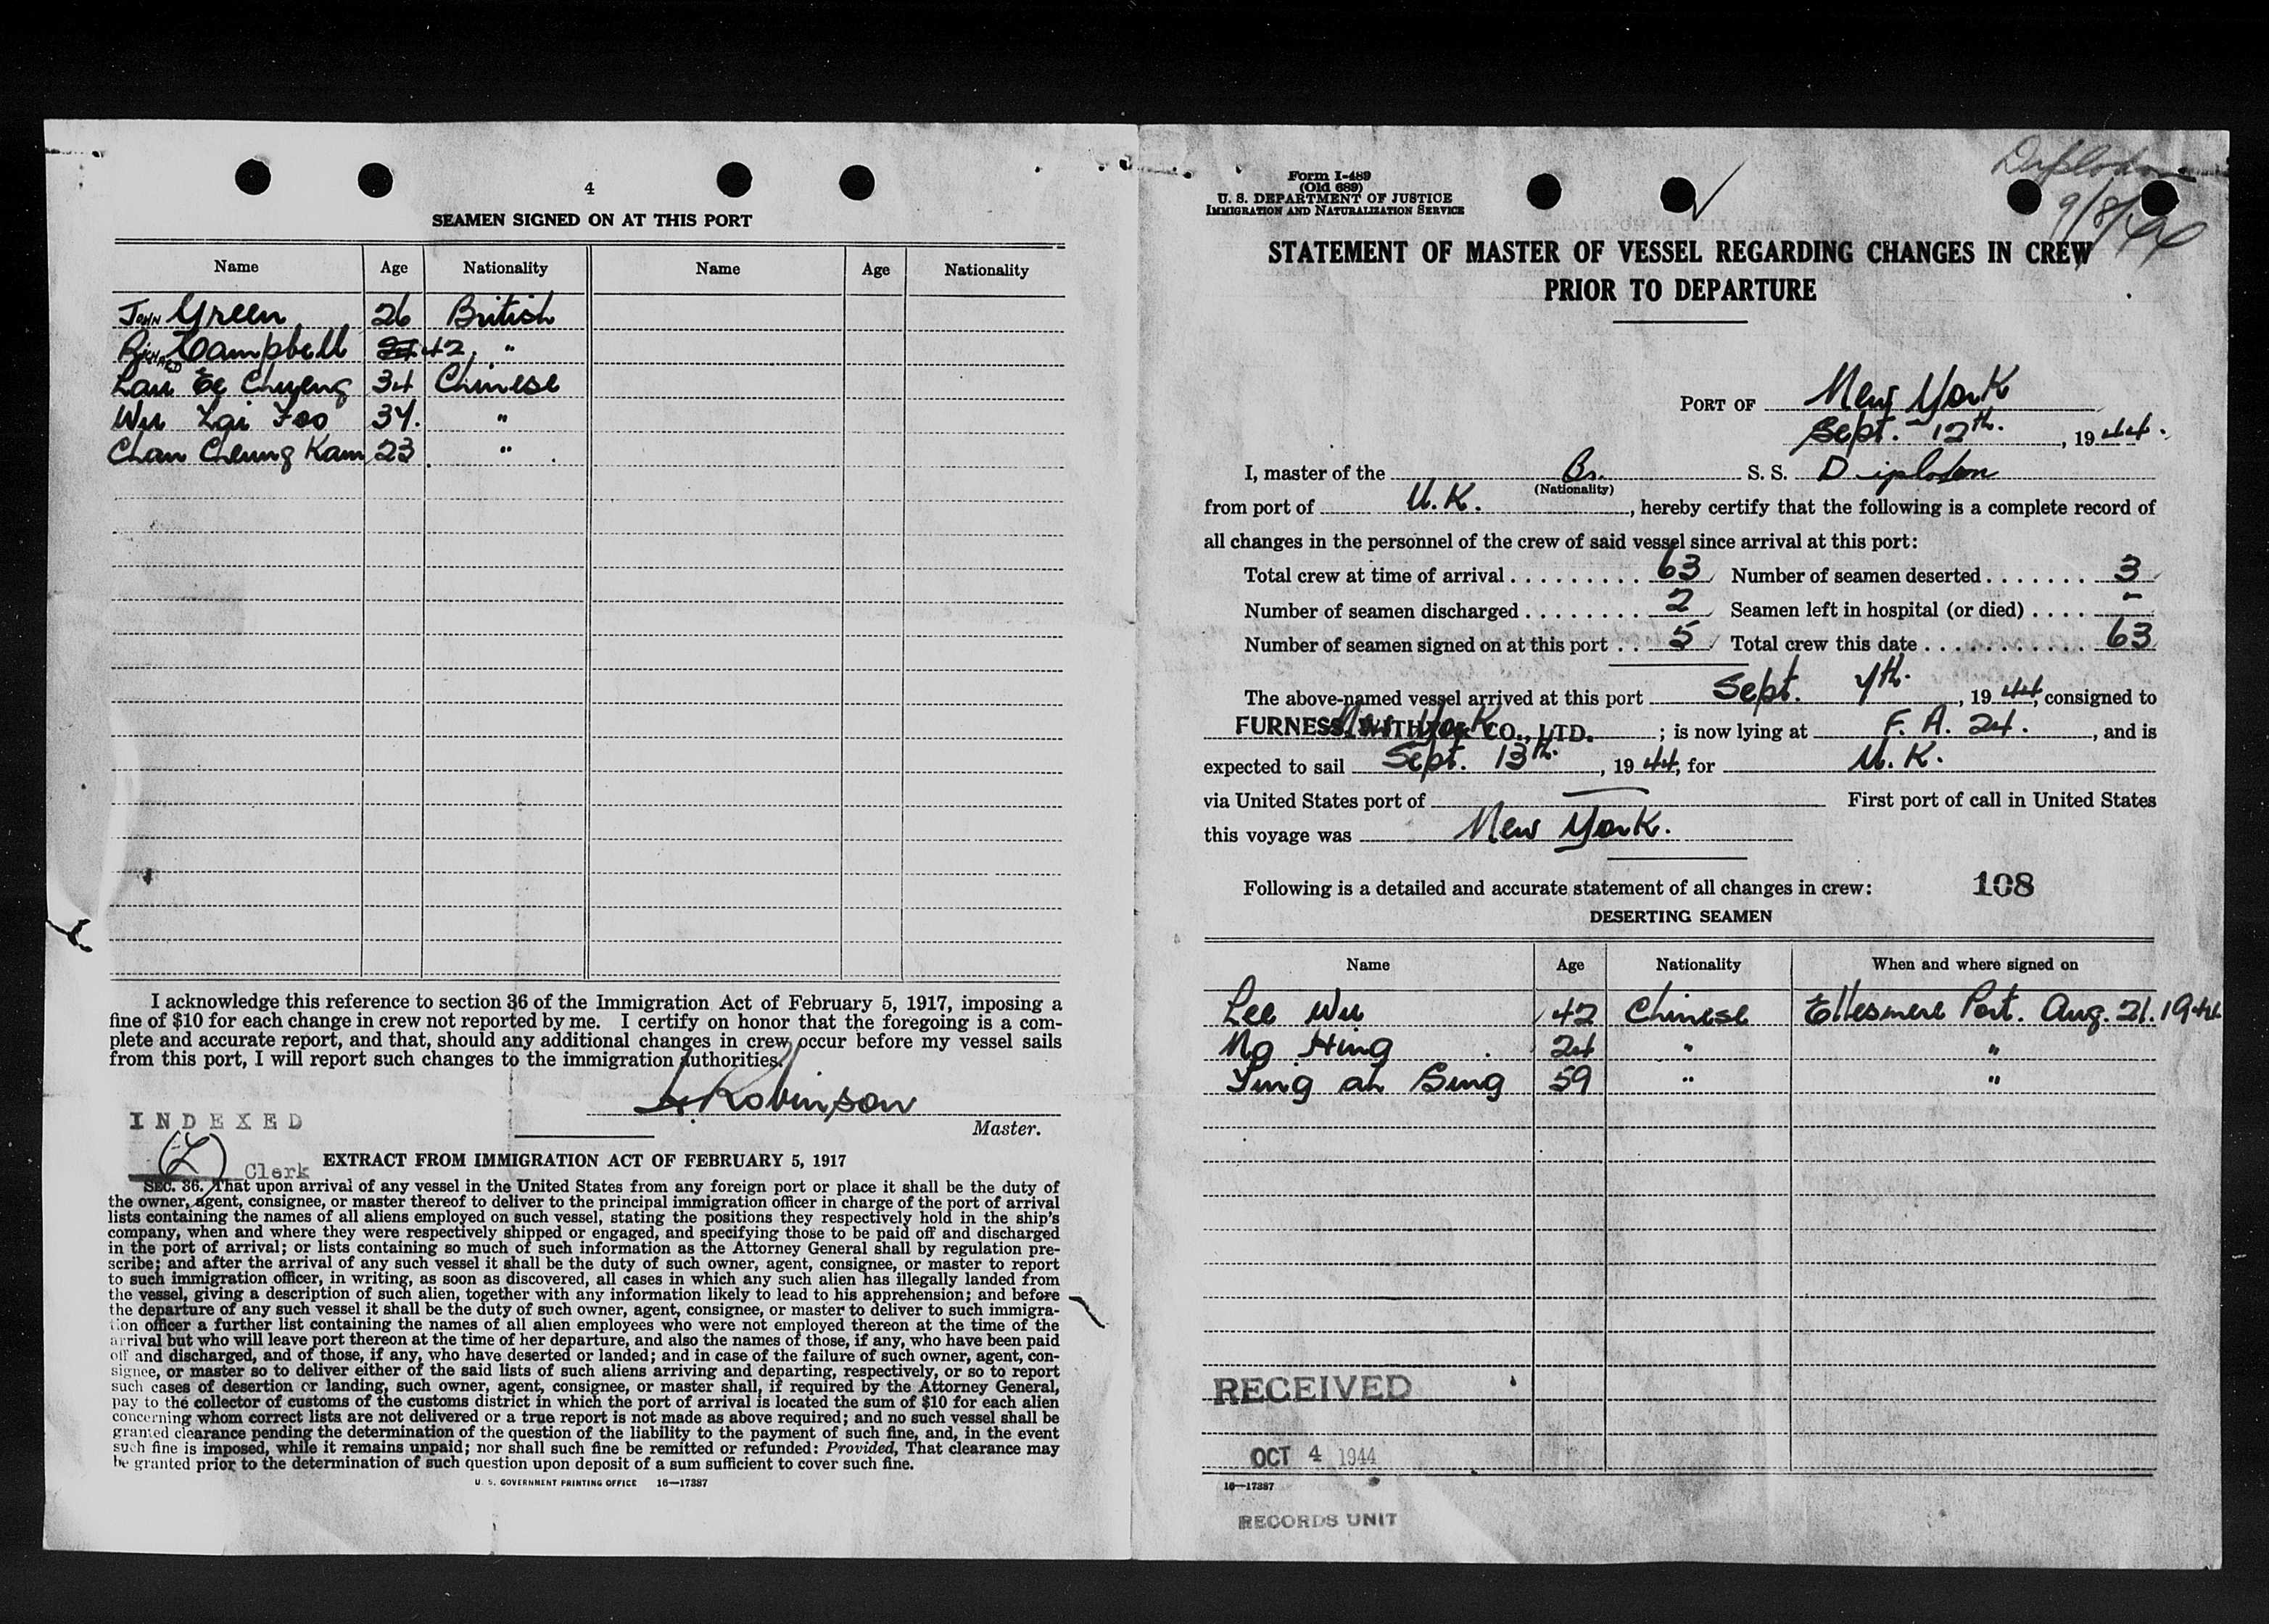 4
SEAMEN SIGNED ON AT THIS PORT
Name Age Nationality Name Age Nationality
JOHN Green 26 British
RICHARD Campbell 42 "
Lau Ee Chueng 34 Chinese
Wu Lai Foo 34. "
Chan Cheung Kam 23 "
I acknowledge this reference to section 36 of the Immigration Act of February 5, 1917, imposing a
fine of $10 for each change in crew not reported by me. I certify on honor that the foregoing is a com-
plete and accurate report, and that, should any additional changes in crew occur before my vessel sails
from this port, I will report such changes to the immigration authorities.
Robinson
Master.
INDEXED
Clerk
EXTRACT FROM IMMIGRATION ACT OF FEBRUARY 5, 1917
SEC. 36. That upon arrival of any vessel in the United States from any foreign port or place it shall be the duty of
the owner, agent, consignee, or master thereof to deliver to the principal immigration officer in charge of the port of arrival
lists containing the names of all aliens employed on such vessel, stating the positions they respectively hold in the ship's
company, when and where they were respectively shipped or engaged, and specifying those to be paid off and discharged
in the port of arrival; or lists containing so much of such information as the Attorney General shall by regulation pre-
scribe; and after the arrival of any such vessel it shall be the duty of such owner, agent, consignee, or master to report
to such immigration officer, in writing, as soon as discovered, all cases in which any such alien has illegally landed from
the vessel, giving a description of such alien, together with any information likely to lead to his apprehension; and before
the departure of any such vessel it shall be the duty of such owner, agent, consignee, or master to deliver to such immigra-
tion officer a further list containing the names of all alien employees who were not employed thereon at the time of the
arrival but who will leave port thereon at the time of her departure, and also the names of those, if any, who have been paid
off and discharged, and of those, if any, who have deserted or landed; and in case of the failure of such owner, agent, con-
signee, or master so to deliver either of the said lists of such aliens arriving and departing, respectively, or so to report
such cases of desertion or landing, such owner, agent, consignee, or master shall, if required by the Attorney General,
pay to the collector of customs of the customs district in which the port of arrival is located the sum of $10 for each alien
concerning whom correct lists are not delivered or a true report is not made as above required; and no such vessel shall be
granted clearance pending the determination of the question of the liability to the payment of such fine, and, in the event
such fine is imposed, while it remains unpaid; nor shall such fine be remitted or refunded: Provided, That clearance may
be granted prior to the determination of such question upon deposit of a sum sufficient to cover such fine.
U. S. GOVERNMENT PRINTING OFFICE 16—17387
Diplodon
9/8/44
Form I-489
(Old 689)
U. S. DEPARTMENT OF JUSTICE
IMMIGRATION AND NATURALIZATION SERVICE
STATEMENT OF MASTER OF VESSEL REGARDING CHANGES IN CREW
PRIOR TO DEPARTURE
PORT OF New York
Sept. 12th. , 19 44.
I, master of the Br. S. S. Diplodon
(Nationality)
from port of U.K. , hereby certify that the following is a complete record of
all changes in the personnel of the crew of said vessel since arrival at this port:
Total crew at time of arrival . . . . . . . . . 63 Number of seamen deserted . . . . . . . 3
Number of seamen discharged . . . . . . . . 2 Seamen left in hospital (or died) . . . . -
Number of seamen signed on at this port . . 5 Total crew this date . . . . . . . . . . . 63
The above-named vessel arrived at this port Sept. 7th. , 19 44, consigned to
FURNESS, WITHY & CO., LTD. New York ; is now lying at F. A. 24. , and is
expected to sail Sept. 13th. , 19 44, for U.K.
via United States port of — First port of call in United States
this voyage was New York.
Following is a detailed and accurate statement of all changes in crew: 108
DESERTING SEAMEN
Name Age Nationality When and where signed on
Lee Wu 42 Chinese Ellesmere Port. Aug. 21. 1944
Ng Hing 24 " "
Ying ah Sing 59 " "
RECEIVED
OCT 4 1944
16—17387
RECORDS UNIT